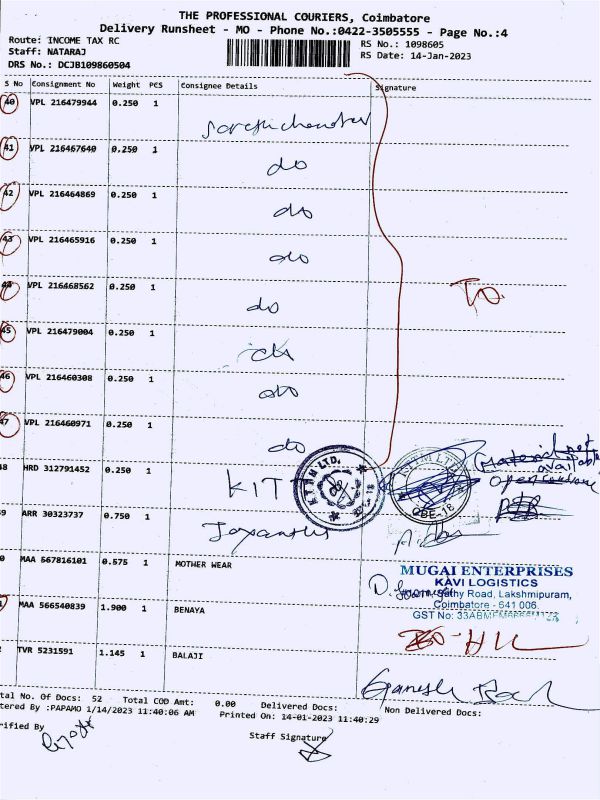 THE PROFESSIONAL COURIERS, Coimbatore
Delivery Runsheet - MO - Phone No.:0422-3505555 - Page No.:4
Route: INCOME TAX RC
Staff: NATARAJ
DRS No.: DCJB109860504
RS No.: 1098605
RS Date: 14-Jan-2023
S No Consignment No Weight PCS Consignee Details Signature
40 VPL 216479944 0.250 1
41 VPL 216467640 0.250 1 do
42 VPL 216464869 0.250 1 do
43 VPL 216465916 0.250 1 do
44 VPL 216468562 0.250 1 do
45 VPL 216479004 0.250 1
46 VPL 216460308 0.250 1 do
47 VPL 216460971 0.250 1 do
48 HRD 312791452 0.250 1 KIT
(Material not
available
9 ARR 30323737 0.750 1
CBE-18
0 MAA 567816101 0.575 1 MOTHER WEAR
MUGAI ENTERPRISES
KAVI LOGISTICS
Sathy Road, Lakshmipuram,
Coimbatore - 641 006.
GST No:
MAA 566540839 1.900 1 BENAYA
2 TVR 5231591 1.145 1 BALAJI
Ganesh
tal No. Of Docs: 52 Total COD Amt: 0.00 Delivered Docs: Non Delivered Docs:
tered By :PAPAMO 1/14/2023 11:40:06 AM Printed On: 14-01-2023 11:40:29
rified By
Staff Signature